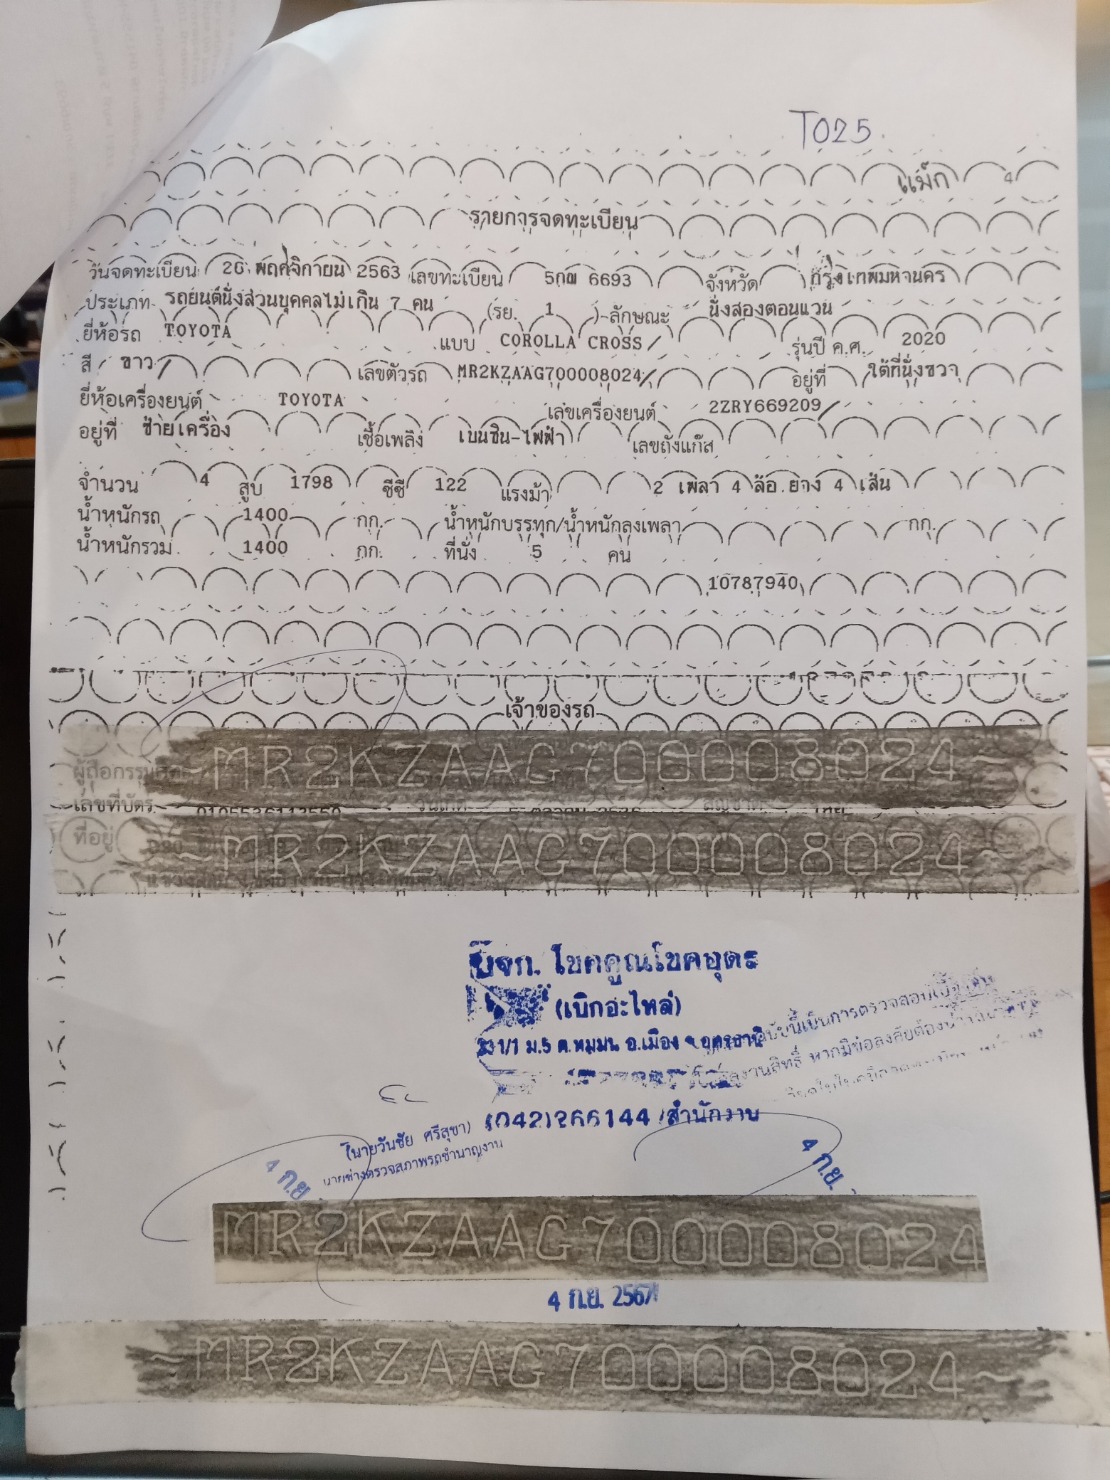 T025
แม็ก 4
รายการจดทะเบียน
วันจดทะเบียน 26 พฤศจิกายน 2563 เลขทะเบียน 5กฒ 6693 จังหวัด กรุงเทพมหานคร
ประเภท รถยนต์นั่งส่วนบุคคลไม่เกิน 7 คน (รย. 1 ) ลักษณะ นั่งสองตอนแวน
ยี่ห้อรถ TOYOTA แบบ COROLLA CROSS รุ่นปี ค.ศ. 2020
สี ขาว เลขตัวรถ MR2KZAAG700008024 อยู่ที่ ใต้ที่นั่งขวา
ยี่ห้อเครื่องยนต์ TOYOTA เลขเครื่องยนต์ 2ZRY669209
อยู่ที่ ซ้ายเครื่อง เชื้อเพลิง เบนซิน-ไฟฟ้า เลขถังแก๊ส
จำนวน 4 สูบ 1798 ซีซี 122 แรงม้า 2 เพลา 4 ล้อ ยาง 4 เส้น
น้ำหนักรถ 1400 กก. น้ำหนักบรรทุก/น้ำหนักลงเพลา กก.
น้ำหนักรวม 1400 กก. ที่นั่ง 5 คน
10787940
เจ้าของรถ
~MR2KZAAG700008024~
ผู้ถือกรรม
เลขที่บัตร
ที่อยู่ ~MR2KZAAG700008024~
บจก. โชคคูณโชคอุดร
(เบิกอะไหล่)
1/1 ม.5 ต.หมูม่น อ.เมือง จ.อุดรธานี
(042)266144 /สำนักงาน
(นายวันชัย ศรีสุขา)
นายช่างตรวจสภาพรถชำนาญงาน
4 ก.ย.
4 ก.ย.
MR2KZAAG700008024
4 ก.ย. 2567
~MR2KZAAG700008024~